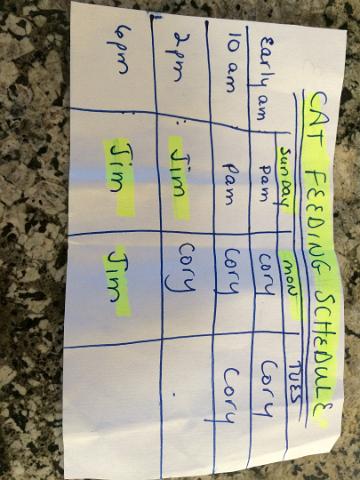 CAT FEEDING SCHEDULE
Sunday mon TUES
Early am Pam Cory Cory
10 am Pam Cory Cory
2pm : Jim Cory
6pm : Jim Jim